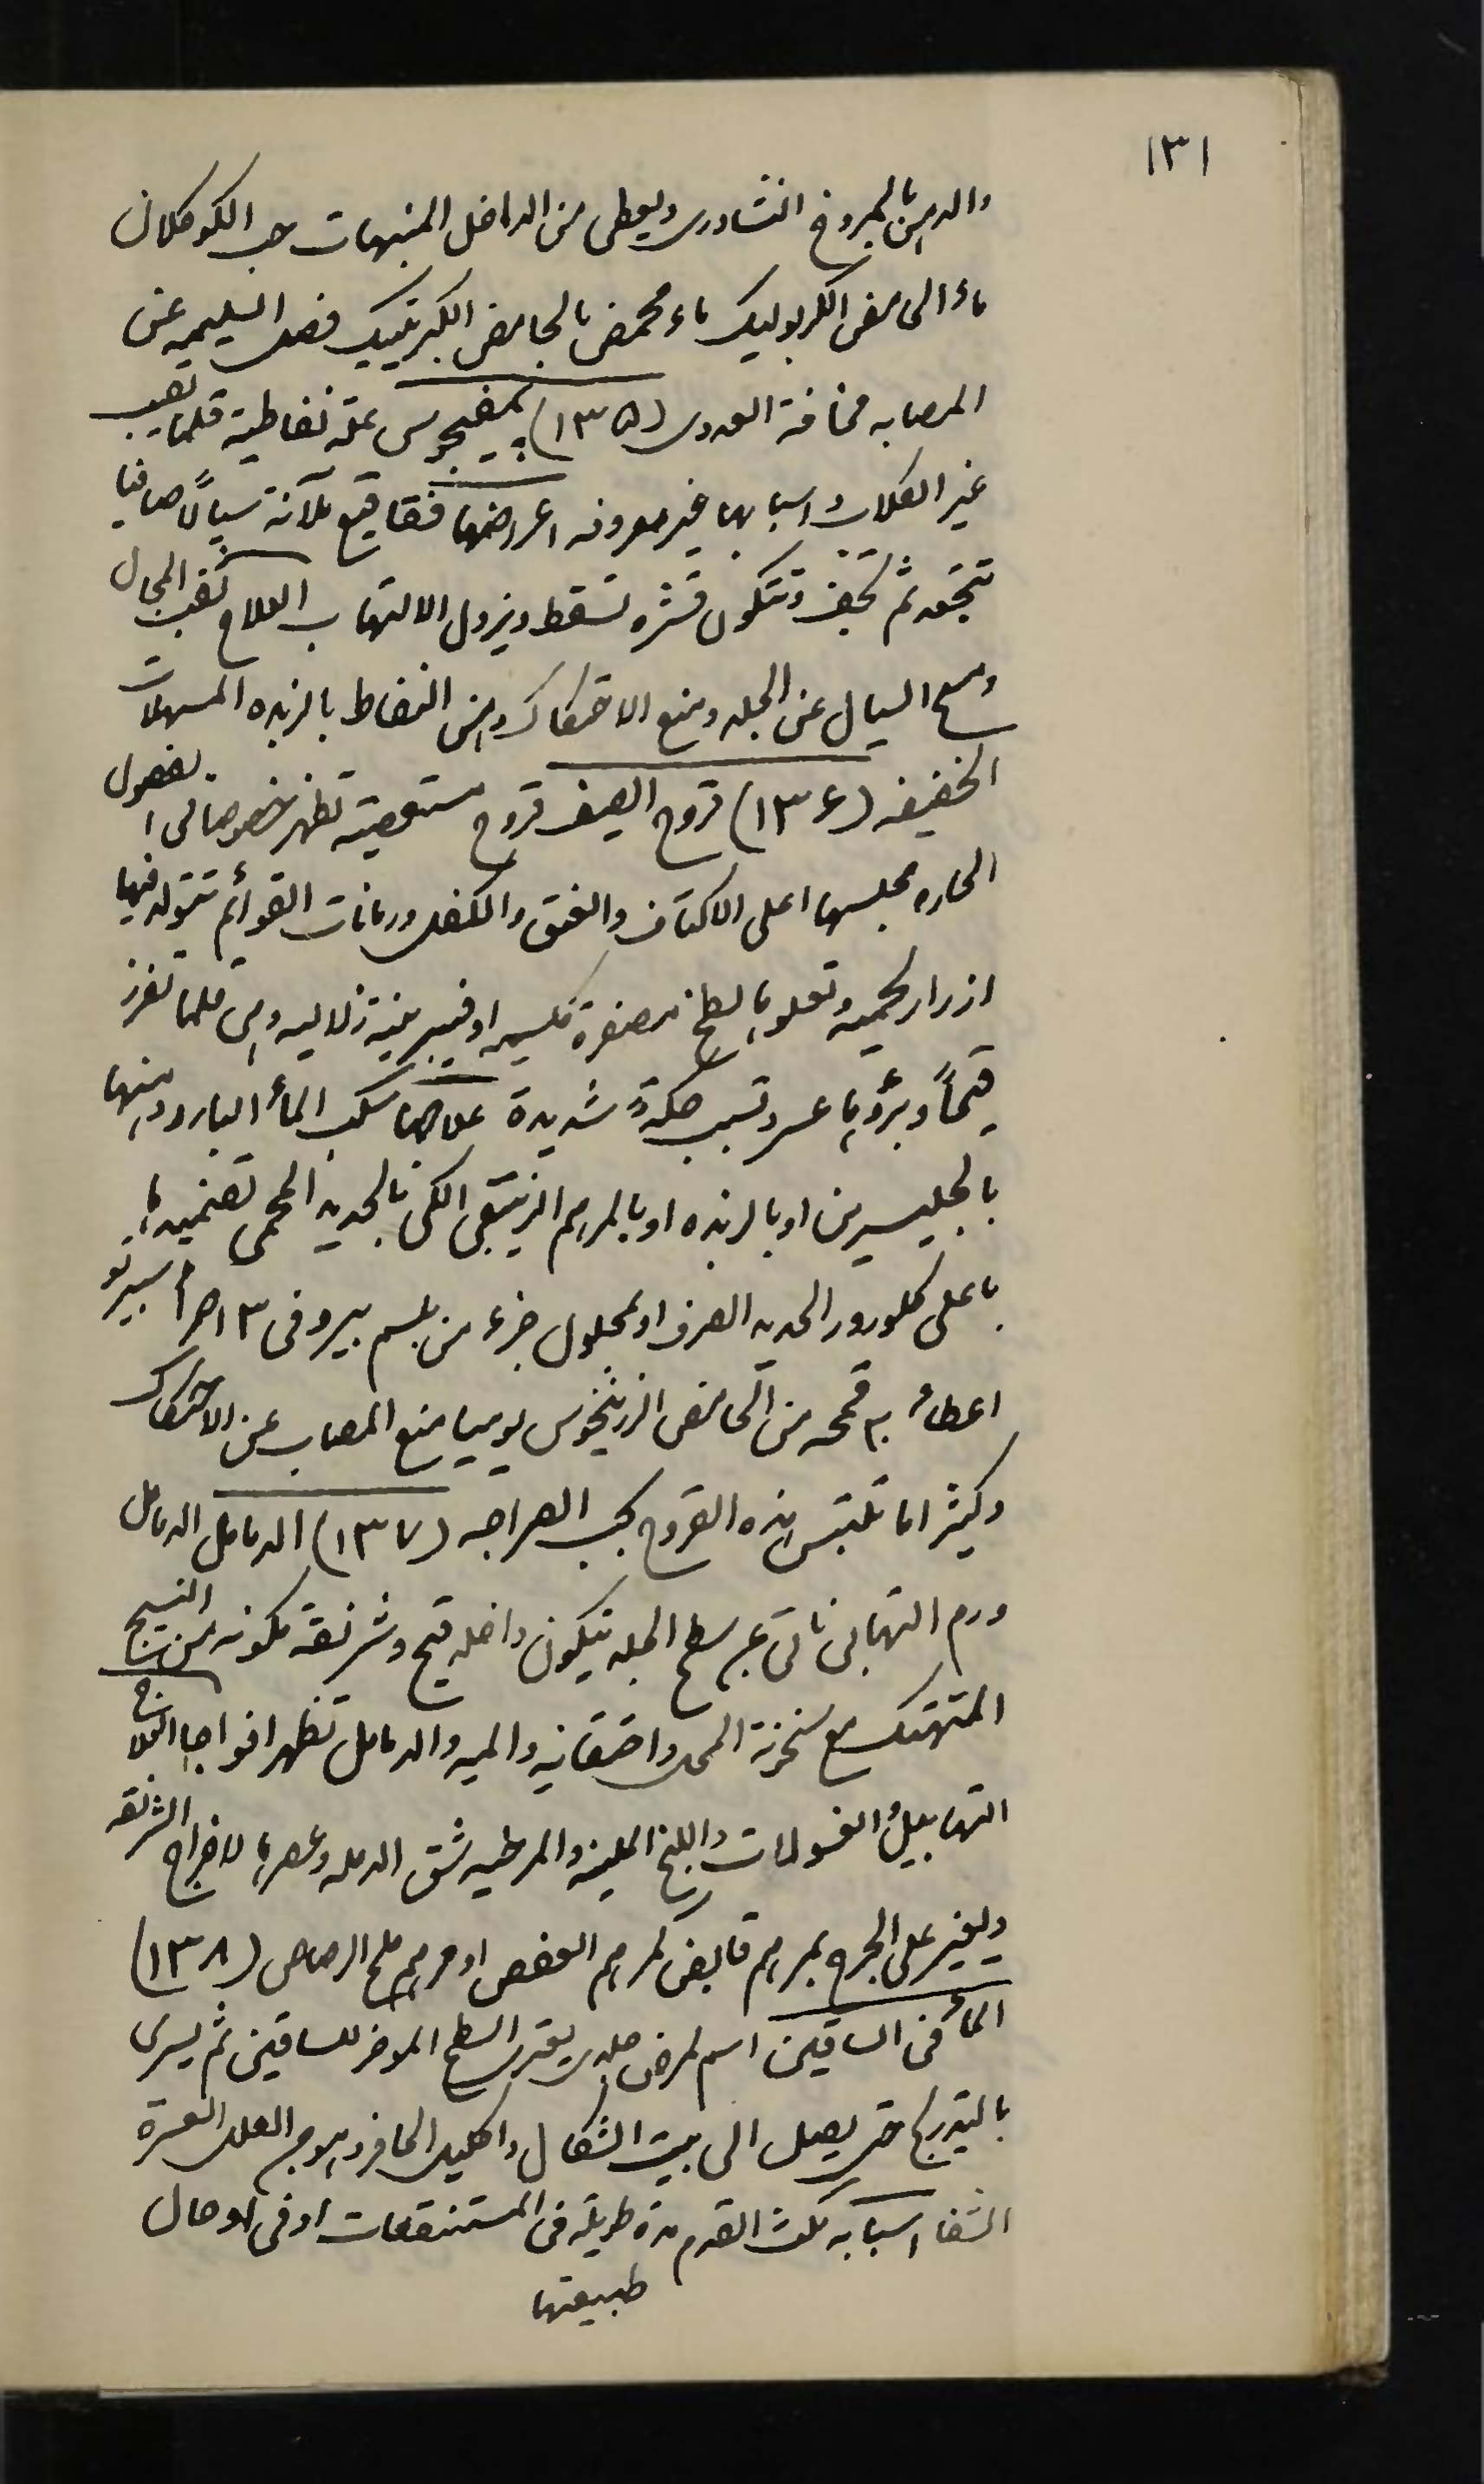 ١٣١
والدهن بالمروخ النشادرى ويعطى من الداخل المنبهات حب الكوكلان
ماء الحامض الكربوليك ماء محمض بالحامض الكبريتيك فصل السليمه عن
المصابه مخافة العدوى (١٣٥) بمفيجوس علة نفاطية قلما تصيب
غير الفلات واسبابها غير معروفه اعراضها فقاقيع ملآنة سيالًا صافيا
تتجمد ثم تجف وتتكون قشره تسقط ويزول الالتهاب العلاج تفتيح المجال
ومسح السيال عن الجلد ومنع الاحتكاك ودهن النفاط بالزبده المسهلات
الخفيفه (١٣٦) قروح الصيف قروح مستعصية تظهر خصوصا فى الفصول
الحاره مجلسها اعلى الاكتاف والعنق والكفل ورمانات القوائم تتولد فيها
ازرار لحميه وتعلوها لطخ مصفرة كلسيه او فيبرينية زلاليه وهى قلما تفرز
قيحاً وبرؤها عسر وتسبب حكةً شديدة علاجها سكب الماء البارد ودهنها
بالجليسرين او بالزبده او بالمرهم الزيبقى الكى بالحديد المحمى تضميدها
باعلى كلورور الحديد الصرف او بمحلول جزء من بلسم بيرو فى ٣ اجزاء سبيرتو
اعطاء ٣ قمحه من الحامض الزرنيخوس يوميا منع المصاب عن الاحتكاك
وكثيرا ما تلتبس هذه القروح بحب السراجه (١٣٧) الدمامل الدمل
ورم التهابى ناتئ عن سطح الجلد يتكون داخله قيح وشرنقة مكونه من النسيج
المتهتك مع سخونة المحل واحتقانه والميه والدمامل تظهر افواجا العلاج
التهابيل الغسولات واللبخ الملينه والمرطبه شق الدمله وعصرها لاخراج الشرنقه
ويغير على الجرح بمرهم قابض كمرهم العفص او مرهم ملح الرصاص (١٣٨)
الماء فى الساقين اسم لمرض جلدى يعترى السطح الموخر للساقين ثم يسرى
بالتدريج حتى يصل الى بيت الشكال واكليل الحافر وهو من العلل العسرة
الشفا اسبابه مكث القدم مدة طويلة فى المستنقعات او فى اوحال
طبيعتها